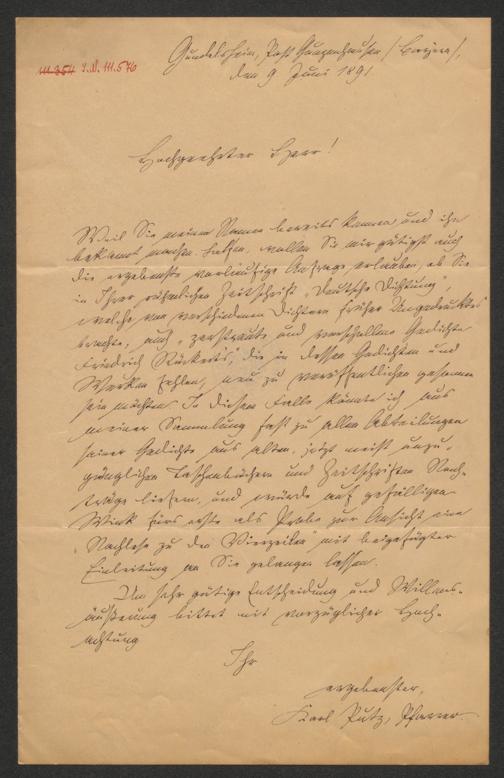 Gundelsheim, Post Gunzenhausen / Bayern /,
den 9 Juni 1891
111.354 I.N. 111.576
Hochgeehrter Herr!
Weil Sie meinen Namen bereits kennen und ihn
bekannt machen helfen, wollen Sie mir gütigst auch
die ergebenste vorläufige Anfrage erlauben, ob Sie
in Ihrer rühmlichen Zeitschrift "Deutsche Dichtung",
welche von verschiedenen Dichtern früher Ungedrucktes
brachte, auch "zerstreute und verschollene Gedichte
Friedrich Rückerts", die in dessen Gedichten und
Werken fehlen, neu zu veröffentlichen gesonnen
sein möchten. In diesem Falle könnte ich aus
meiner Sammlung fast zu allen Abteilungen
seiner Gedichte aus alten, jetzt meist unzu-
gänglichen Taschenbüchern und Zeitschriften Nach-
träge liefern, und würde auf gefälligen
Wink fürs erste als Probe zur Ansicht eine
"Nachlese zu den Vierzeilen" mit beigefügter
Einleitung an Sie gelangen lassen.
Um sehr gütige Entscheidung und Willens-
äußerung bittet mit vorzüglicher Hoch-
achtung
Ihr
ergebenster,
Karl Putz, Pfarrer.